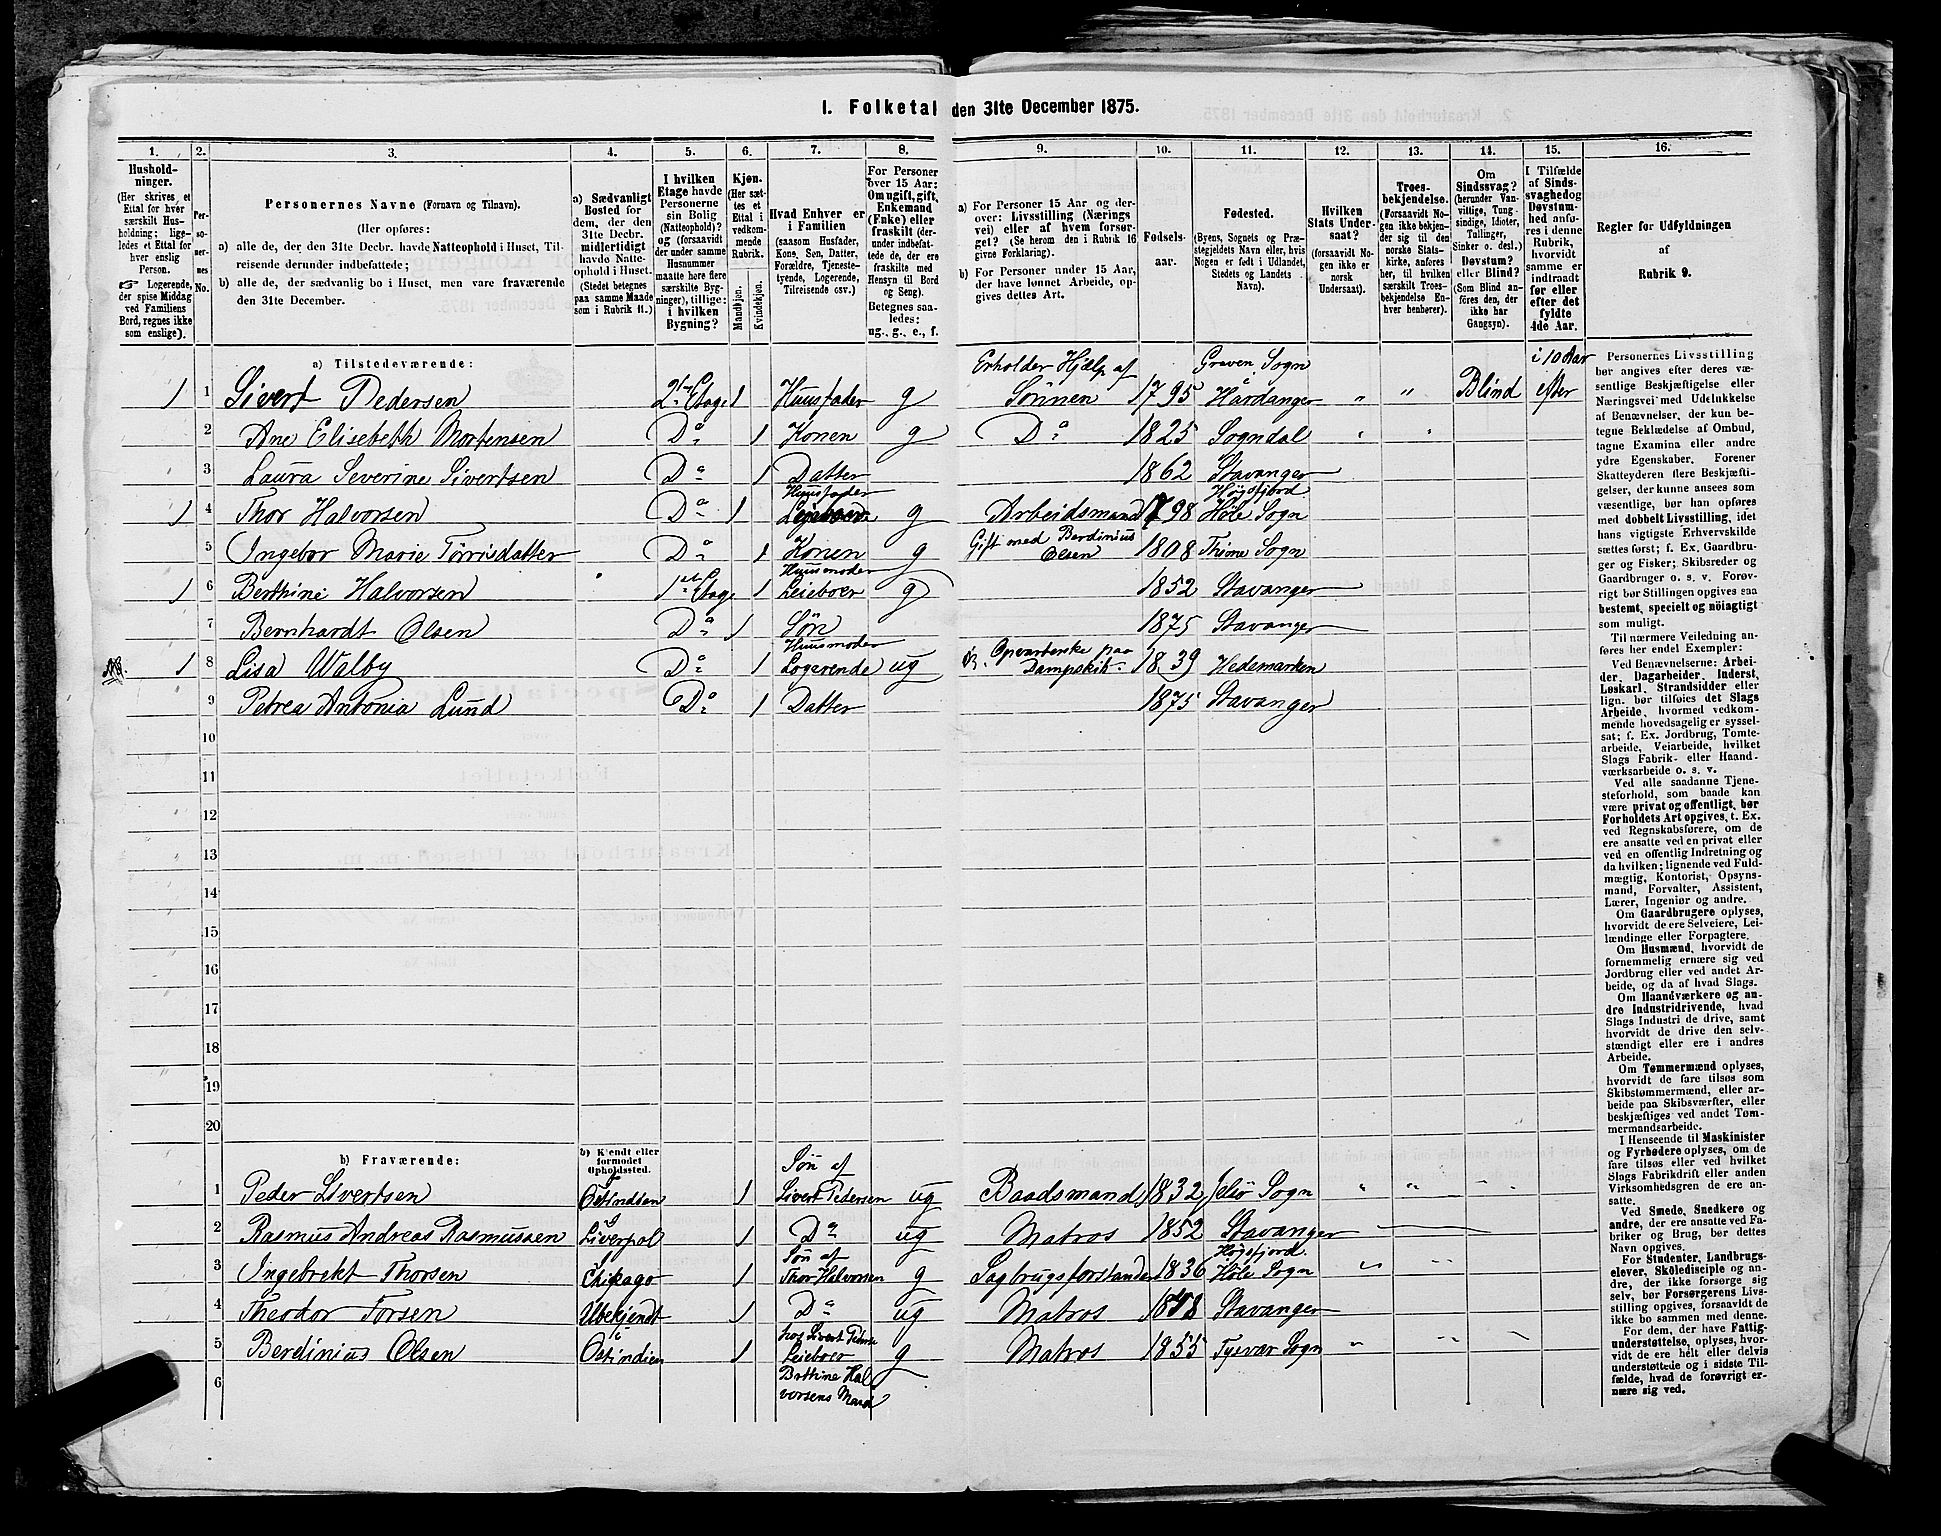 1. Folketal den 31te December 1875.
1. 2. 3. 4. 5. 6. 7. 8. 9. 10. 11. 12. 13. 14. 15. 16.
Hushold-
ninger.
(Her skrives et
Ettal for hver
særskilt Hus-
holdning; lige-
ledes et Ettal for
hver enslig
Person.
☞ Logerende,
der spise Middag
ved Familiens
Bord, regnes ikke
som enslige).
Per-
so-
ner-
nes
No.
Personernes Navne (Fornavn og Tilnavn).
(Her opføres:
a) alle de, der den 31te Decbr. havde Natteophold i Huset, Til-
reisende derunder indbefattede;
b) alle de, der sædvanlig bo i Huset, men vare fraværende
den 31te December.
a) Sædvanligt
Bosted for
dem, der den
31te Decbr.
midlertidigt
havde Natte-
ophold i Huset.
(Stedet betegnes
paa samme Maade
som i Rubrik 11.)
I hvilken
Etage havde
Personerne
sin Bolig
(Natteophold)?
og (forsaavidt
der under samme
Husnummer
maatte høre flere
særskilte Byg-
ninger), tillige:
i hvilken
Bygning?
Kjøn.
(Her sæt-
tes et
Ettal i
vedkom-
mende
Rubrik.
Mandkjøn.
Kvindekjøn.
Hvad Enhver er
i Familien
(saasom Husfader,
Kone, Søn, Datter,
Forældre, Tjeneste-
tyende, Logerende,
Tilreisende osv.)
For Personer
over 15 Aar:
Om ugift, gift,
Enkemand
(Enke) eller
fraskilt (der-
under indbefat-
tede de, der ere
fraskilte med
Hensyn til Bord
og Seng).
Betegnes saa-
ledes:
ug., g., e., f.
a) For Personer 15 Aar og der-
over: Livsstilling (Nærings
vei) eller af hvem forsør-
get? (Se herom den i Rubrik 16
givne Forklaring).
b) For Personer under 15 Aar,
der have lønnet Arbeide, op-
gives dettes Art.
Fødsels-
aar.
Fødested.
(Byens, Sognets og Præ-
stegjeldets Navn eller, hvis
Nogen er født i Udlandet,
Stedets og Landets
Navn).
Hvilken
Stats Under-
saat?
(forsaavidt No-
gen ikke er
norsk
Undersaat).
Troes-
bekjendelse.
(Forsaavidt No-
gen ikke bekjen-
der sig til den
norske Stats-
kirke, anføres
her, til hvilken
særskilt Troes-
bekjendelse En-
hver henhører).
Om
Sindssvag?
(herunder Van-
vittige, Tung-
sindige, Idioter,
Tullinger,
Sinker o. desl.)
Døvstum?
eller Blind?
(Som Blind an-
føres den, der
ikke har
Gangsyn).
I Tilfælde
af Sinds-
svaghed og
Døvstum-
hed anfø-
res i denne
Rubrik,
hvorvidt
samme er
indtraadt
før eller
efter det
fyldte
4de Aar.
Regler for Udfyldningen
af
Rubrik 9.
a) Tilstedeværende:
1 1 Sivert Pedersen 2den Etage 1 Huusfader g Erholder Hjælp af Sønnen 1795 Graven Sogn Hardanger " " Blind i 10 Aar efter
2 Ane Elisebeth Mortensen Do 1 Konen g Do 1825 Sogndal " "
3 Laura Severine Sivertsen Do 1 Datter 1862 Stavanger
1 4 Thor Halvorsen Do 1 Huusfader Leieboer g Arbeidsmand 1798 Høgsfjord Høle Sogn
5 Ingebor Marie Tørrisdatter Do 1 Konen g Gift med Berdinius Olsen 1808 Thime Sogn
1 6 Berthine Halvorsen 1st Etage 1 Huusmoder Leieboer g 1852 Stavanger
7 Bernhardt Olsen Do 1 Søn 1875 Stavanger
1 8 Lisa Walby Do 1 Huusmoder Logerende ug Opvarterske paa Dampskib 1839 Hedemarken
9 Petrea Antonia Lund Do 1 Datter 1875 Stavanger
10
11
12
13
14
15
16
17
18
19
20
b) Fraværende:
b) Kjendt eller
formodet
Opholdssted.
1 Peder Sivertsen Ostindien 1 Søn af Sivert Pedersen ug Baadsmand 1832 Jelsø Sogn " " " "
2 Rasmus Andreas Rasmussen Liverpol 1 Do ug Matros 1852 Stavanger
3 Ingebrekt Thorsen Chikago 1 Søn af Thor Halvorsen g Sagbrugsforstander 1836 Høgsfjord Høle Sogn " "
4 Theodor Torsen Ubekjendt 1 Do ug Matros 1848 Stavanger
5 Berdinius Olsen Ostindien 1 hos Sivert Pedersen Leieboer g Matros 1855 Tysvær Sogn " " "
6 Brthine Hal
vorsens Mand
Personernes Livsstilling
bør angives efter deres væ-
sentlige Beskjæftigelse eller
Næringsvei med Udelukkelse
af Benævnelser, der kun be-
tegne Beklædelse af Ombud,
tagne Examina eller andre
ydre Egenskaber. Forener
Skatteyderen flere Beskjæfti-
gelser, der kunne ansees som
væsentlige, bør han opføres
med dobbelt Livsstilling, idet
hans vigtigste Erhvervskilde
sættes først; f. Ex. Gaardbru-
ger og Fisker; Skibsreder og
Gaardbruger o. s. v. Forøv-
rigt bør Stillingen opgives saa
bestemt, specielt og nöiagtigt
som muligt.
Til nærmere Veiledning an-
føres her endel Exempler:
Ved Benævnelserne: Arbei-
der, Dagarbeider, Inderst,
Løskarl, Strandsidder eller
lign. bør tilføies det Slags
Arbeide, hvormed vedkom-
mende hovedsagelig er syssel-
sat; f. Ex. Jordbrug, Tomte-
arbeide, Veiarbeide, hvilket
Slags Fabrik- eller Haand-
værksarbeide o. s. v.
Ved alle saadanne Tjene-
steforhold, som baade kan
være privat og offentligt, bør
Forholdets Art opgives, t. Ex.
ved Regnskabsførere, om de
ere ansatte ved en privat eller
ved en offentlig Indretning og
da hvilken; lignende ved Fuld-
mægtig, Kontorist, Opsyns-
mand, Forvalter, Assistent,
Lærer, Ingeniør og andre.
Om Gaardbrugere oplyses,
hvorvidt de ere Selveiere, Lei-
lændinge eller Forpagtere.
Om Husmænd, hvorvidt de
fornemmelig ernære sig ved
Jordbrug eller ved andet Ar-
beide, og da af hvad Slags.
Om Haandværkere og an-
dre Industridrivende, hvad
Slags Industri de drive, samt
hvorvidt de drive den selv-
stændigt eller ere i andres
Arbeide.
Om Tømmermænd oplyses,
hvorvidt de fare tilsøs som
Skibstømmermænd, eller ar-
beide paa Skibsværfter, eller
beskjæftiges ved andet Tøm-
mermandsarbeide.
I Henseende til Maskinister
og Fyrbødere oplyses, om de
fare tilsøs eller ved hvilket
Slags Fabrikdrift eller anden
Virksomhedsgren de ere an-
satte.
Ved Smede, Snedkere og
andre, der ere ansatte ved Fa-
briker og Brug, bør dettes
Navn opgives.
For Studenter, Landbrugs-
elever, Skoledisciple og an-
dre, der ikke forsørge sig
selv, bør Forsørgerens Livs-
stilling opgives, forsaavidt de
ikke bo sammen med denne.
For dem, der have Fattig-
understøttelse, oplyses, hvor-
vidt de ere helt eller delvis
understøttede og i sidste Til-
fælde, hvad de forøvrigt er-
nære sig ved.